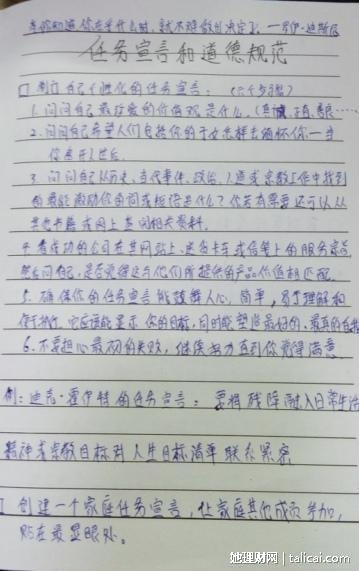 当你知道你在乎什么时，就不难做出决定了。—罗伊·迪斯尼
任务宣言和道德规范
制订自己个性化的任务宣言：（六个步骤）
1. 问问自己最珍爱的价值观是什么，（真诚、正直、
2. 问问自己希望人们包括你的子女怎样去缅怀你—当
你离开人世后
3. 问问自己从历史、当代事件、政治、人道或宗教工作中找到
的最能激励你的词或短语是什么？你若有需要还可以从
其他书籍或网上查阅相关资料。
4. 看成功的公司在其网站上、送货卡车或信笺上的服务宗旨
然后问自己，是否觉得这与他们所提供的产品价值相匹配。
5. 确保你的任务宣言能鼓舞人心，简单，易于理解和
便于执行，它应该能显示你的目标，同时能塑造最好的、最真的自我
6. 不要担心最初的失败，继续努力直到你觉得满意
例：迪克·霍伊特的任务宣言：要将残障融入日常生活
精神或宗教目标和人生目标清单联系紧密
创建一个家庭任务宣言，让家庭其他成员参加，
贴在最显眼处。
她理财网 talicai.com